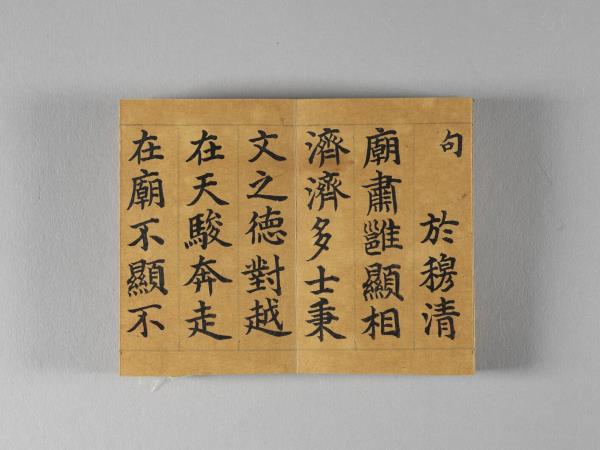 句
於穆清
廟肅雝顯相
濟濟多士秉
文之德對越
在天駿奔走
在廟不顯不